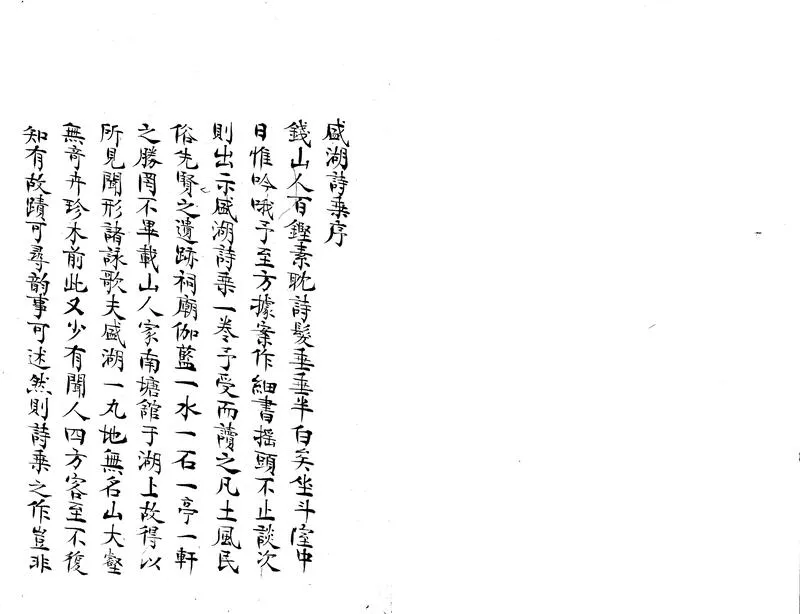 盛湖詩乘序
錢山人百鏗素耽詩髮垂垂半白矣坐斗室中
日惟吟哦予至方據案作細書摇頭不止談次
則出示盛湖詩乘一卷予受而讀之凡土風民
俗先賢之遺跡祠廟伽藍一水一石一亭一軒
之勝罔不畢載山人家南塘館于湖上故得以
所見聞形諸詠歌夫盛湖一丸地無名山大壑
無竒卉珍木前此又少有聞人四方客至不復
知有故蹟可尋韵事可述然則詩乘之作豈非